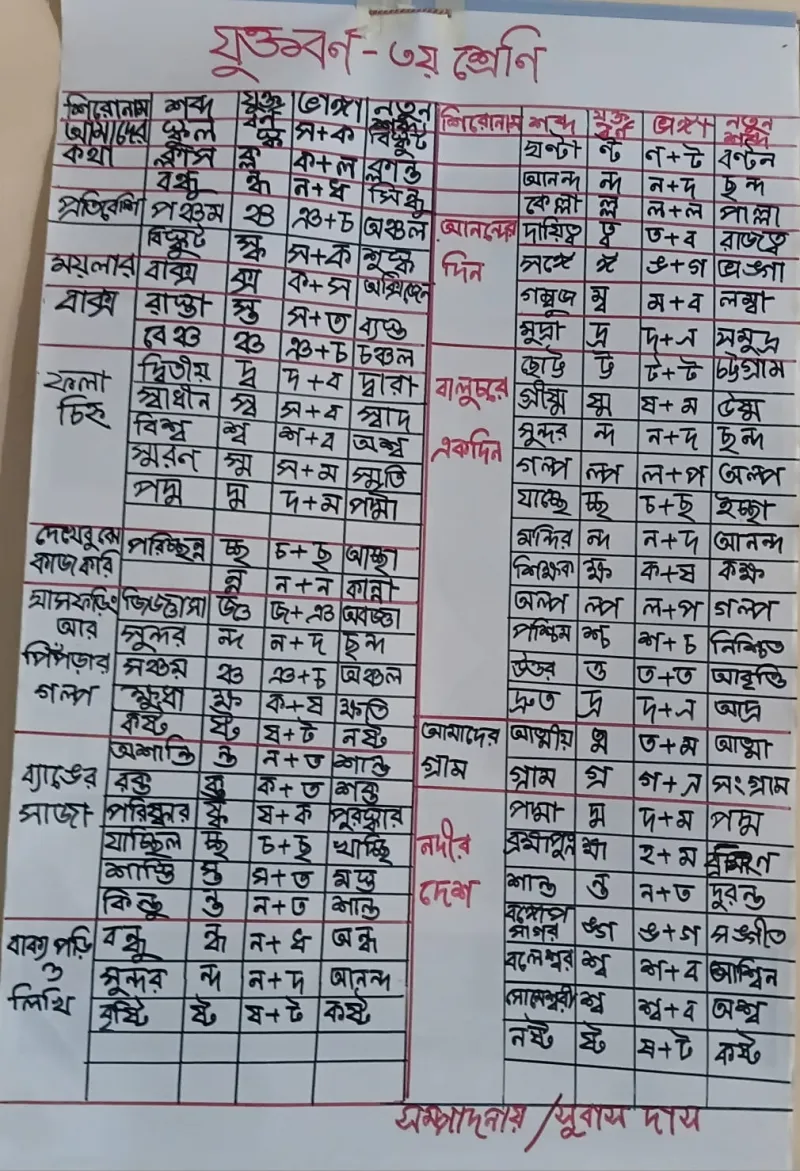 যুক্তবর্ণ - ৩য় শ্রেণি
শিরোনাম শব্দ যুক্ত বর্ণ ভাঙ্গা নতুন শব্দ
আমাদের স্কুল স্ক স+ক বিস্কুট
কথা ক্লাস ক্ল ক+ল ক্লান্ত
বন্ধু ন্ধ ন+ধ সিন্ধু
প্রতিবেশি পঞ্চম ঞ্চ ঞ+চ অঞ্চল
বিস্কুট স্ক স+ক শুষ্ক
ময়লার বাক্স ক্স ক+স অক্সিজেন
বাক্স রাস্তা স্ত স+ত ব্যস্ত
বেঞ্চ ঞ্চ ঞ+চ চঞ্চল
ফলা দ্বিতীয় দ্ব দ+ব দ্বারা
চিহ্ন স্বাধীন স্ব স+ব স্বাদ
বিশ্ব শ্ব শ+ব অশ্ব
স্মরন স্ম স+ম স্মৃতি
পদ্ম দ্ম দ+ম পদ্মা
দেখেবুঝে পরিচ্ছন্ন চ্ছ চ+ছ আচ্ছা
কাজকরি ন্ন ন+ন কান্না
ঘাসফড়িং জিজ্ঞাসা জ্ঞ জ+ঞ অবজ্ঞা
আর সুন্দর ন্দ ন+দ ছন্দ
পিঁপড়ার সঞ্চয় ঞ্চ ঞ+চ অঞ্চল
গল্প ক্ষুধা ক্ষ ক+ষ ক্ষতি
কষ্ট ষ্ট ষ+ট নষ্ট
অশান্তি ন্ত ন+ত শান্ত
ব্যাঙের রক্ত ক্ত ক+ত শক্ত
সাজা পরিষ্কার ষ্ক ষ+ক পুরষ্কার
যাচ্ছিল চ্ছ চ+ছ খাচ্ছি
শাস্তি স্ত স+ত মস্ত
কিন্তু ন্ত ন+ত শান্ত
বাক্য পড়ি বন্ধু ন্ধ ন+ধ অন্ধ
ও সুন্দর ন্দ ন+দ আনন্দ
লিখি বৃষ্টি ষ্ট ষ+ট কষ্ট
শিরোনাম শব্দ যুক্ত বর্ণ ভাঙ্গা নতুন শব্দ
ঘণ্টা ণ্ট ণ+ট বণ্টন
আনন্দ ন্দ ন+দ ছন্দ
কেল্লা ল্ল ল+ল পাল্লা
আনন্দের দায়িত্ব ত্ব ত+ব রাজত্ব
দিন সঙ্গে ঙ্গ ঙ+গ ভাঙ্গা
গম্বুজ ম্ব ম+ব লম্বা
মুদ্রা দ্র দ+্র সমুদ্র
বালুচরে ছোট্ট ট্ট ট+ট চট্টগ্রাম
গ্রীষ্ম ষ্ম ষ+ম উষ্ম
একদিন সুন্দর ন্দ ন+দ ছন্দ
গল্প ল্প ল+প অল্প
যাচ্ছে চ্ছ চ+ছ ইচ্ছা
মন্দির ন্দ ন+দ আনন্দ
শিক্ষক ক্ষ ক+ষ কক্ষ
অল্প ল্প ল+প গল্প
পশ্চিম শ্চ শ+চ নিশ্চিত
উত্তর ত্ত ত+ত আবৃত্তি
দ্রুত দ্র দ+্র আদ্র
আমাদের আত্মীয় ত্ম ত+ম আত্মা
গ্রাম গ্রাম গ্র গ+্র সংগ্রাম
পদ্মা দ্ম দ+ম পদ্ম
নদীর হ্ম হ+ম
দেশ শান্ত ন্ত ন+ত দুরন্ত
বঙ্গোপ সাগর ঙ্গ ঙ+গ সঙ্গীত
বলেশ্বর শ্ব শ+ব আশ্বিন
শ্ব শ্ব+ব অশ্ব
নষ্ট ষ্ট ষ+ট কষ্ট
সম্পাদনায়/সুবাস দাস